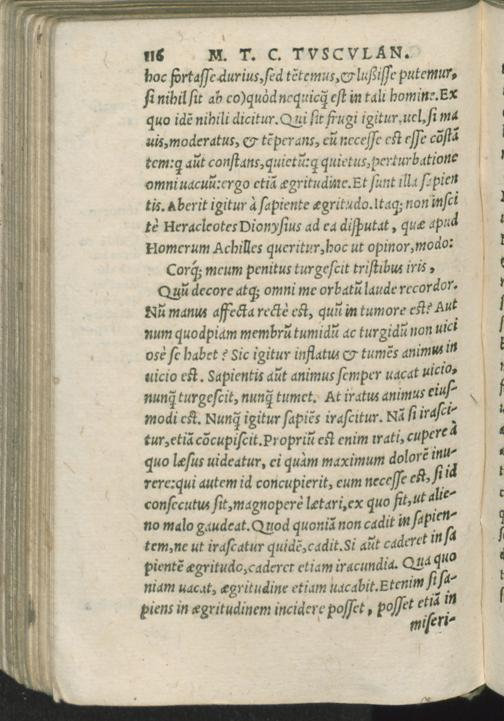 116 M. T. C. TVSCVLAN.
hoc fortasse durius, sed tẽtemus, & lusisse putemur,
si nihil sit ab eo) quòd nequicq̃ est in tali homine. Ex
quo idẽ nihili dicitur. Qui sit frugi igitur, uel, si ma
uis, moderatus, & tẽperans, eũ necesse est esse cõstã
tem: q aũt constans, quietũ: q quietus, perturbatione
omni uacuũ: ergo etiã ægritudine. Et sunt illa sapien
tis. Aberit igitur à sapiente ægritudo. Itaq; non insci
tè Heracleotes Dionysius ad ea disputat, quæ apud
Homerum Achilles queritur, hoc ut opinor, modo:
Corq́; meum penitus turgescit tristibus iris,
Quũ decore atq; omni me orbatũ laude recordor.
Nũ manus affecta rectè est, quũ in tumore est? Aut
num quodpiam membrũ tumidũ ac turgidũ non uici
osè se habet? Sic igitur inflatus & tumẽs animus in
uicio est. Sapientis aũt animus semper uacat uicio,
nunq̃ turgescit, nunq̃ tumet. At iratus animus eius-
modi est. Nunq̃ igitur sapiẽs irascitur. Nã si irasci-
tur, etiã cõcupiscit. Propriũ est enim irati, cupere à
quo læsus uideatur, ei quàm maximum dolorẽ inu-
rere: qui autem id concupierit, eum necesse est, si id
consecutus sit, magnoperè lætari, ex quo fit, ut alie-
no malo gaudeat. Quod quoniã non cadit in sapien-
tem, ne ut irascatur quidẽ, cadit. Si aũt caderet in sa
pientẽ ægritudo, caderet etiam iracundia. Qua quo
niam uacat, ægritudine etiam uacabit. Etenim si sa-
piens in ægritudinem incidere posset, posset etiã in
miseri-